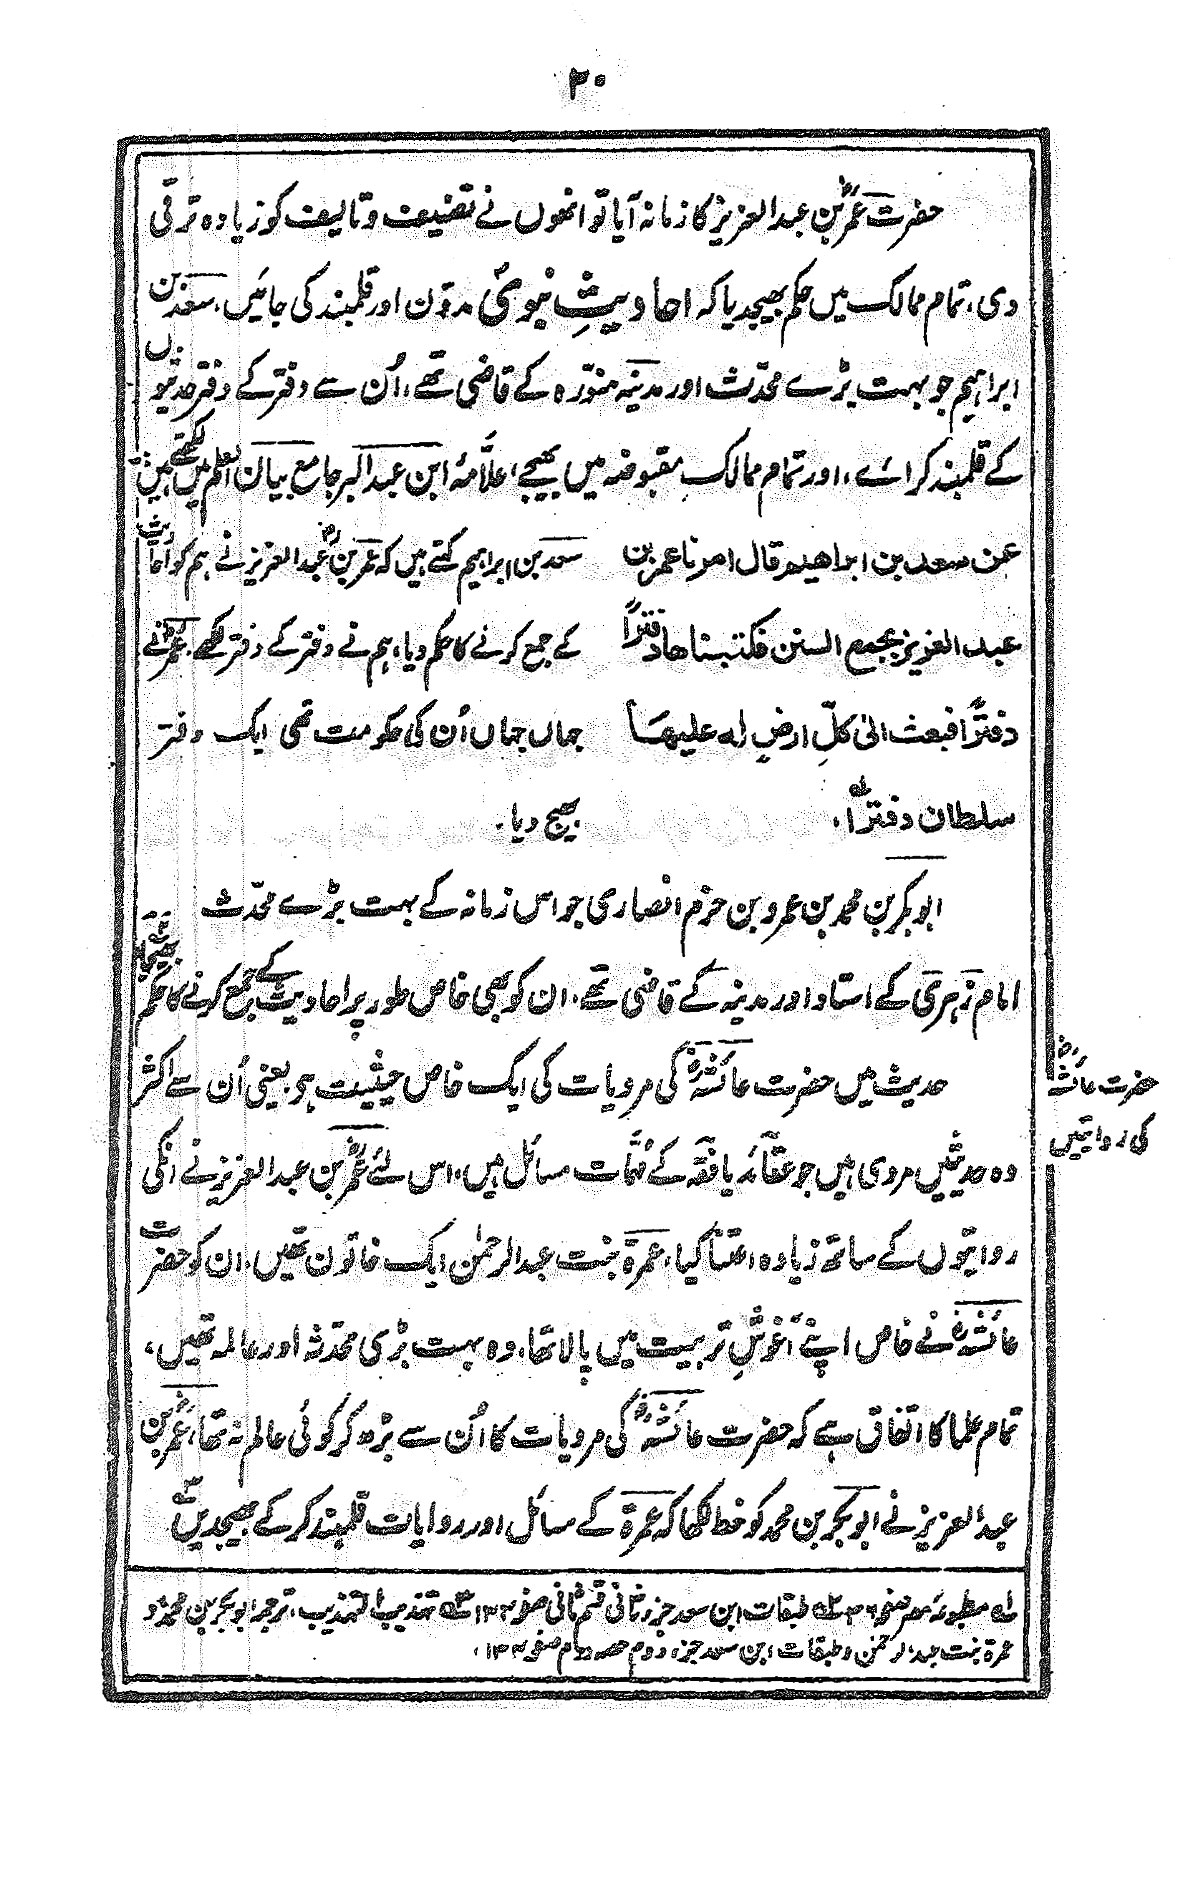 ۲۰
حضرت عمرؓ بن عبد العزیز کا زمانہ آیا تو انھوں نے تصنیف و تالیف کو زیادہ ترقی
دی، تمام ممالک میں حکم بھیجدیا کہ احادیثِ نبویؐ مدوّن اور قلمبند کی جائیں، سعد بن
ابراہیم جو بہت بڑے محدّث اور مدینہ منوّرہ کے قاضی تھے، اُن سے دفتر کے دفتر حدیثوں
کے قلمبند کرائے، اور تمام ممالک مقبوضہ میں بھیجے، علّامۂ ابن عبد البر جامع بیان العلم میں لکھتے ہیں:
عن سعد بن ابراهيم قال امرنا عمر بن
عبد العزيز بجمع السنن فكتبناها دفترًا
دفترًا فبعث الىٰ كلّ ارضٍ له عليها
سلطان دفترًا لہ،
سعد بن ابراہیم کہتے ہیں کہ عمر بنؓ عبد العزیز نے ہم کو احادیث
کے جمع کرنے کا حکم دیا، ہم نے دفتر کے دفتر لکھے، عمرؓ نے
جہاں جہاں اُن کی حکومت تھی ایک دفتر
بھیج دیا۔
ابوبکر بن محمد بن عمرو بن حزم انصاری جو اس زمانہ کے بہت بڑے محدّث
امام زہری کے استاد اور مدینہ کے قاضی تھے، ان کو بھی خاص طور پر احادیث کے جمع کرنے کا حکم بھیجا
حدیث میں حضرت عائشہؓ کی مرویات کی ایک خاص حیثیت ہو، یعنی اُن سے اکثر
وہ حدیثیں مروی ہیں جو عقائد یا فقہ کے مُہمات مسائل ہیں، اس لئے عمرؓ بن عبد العزیز نے انکی
روایتوں کے ساتھ زیادہ اعتنا کیا، عمرۃ بنت عبد الرحمٰن ایک خاتون تھیں، ان کو حضرت
عائشہؓ نے خاص اپنے آغوشِ تربیت میں پالا تھا، وہ بہت بڑی محدّثہ اور عالمہ تھیں،
تمام علما کا اتفاق ہے کہ حضرت عائشہؓ کی مرویات کا اُن سے بڑھ کر کوئی عالم نہ تھا، عمرؓ بن
عبد العزیز نے ابوبکر بن محمد کو خط لکھا کہ عمرۃ کے مسائل اور روایات قلمبند کر کے بھیجدیں
حضرت عائشہؓ
کی روایتیں
لہ مطبوعہ مصر صفحہ ۳۶ لہ طبقات ابن سعد جزء ثانی قسم ثانی صفحہ ۱۳۴ لہ تہذیب التہذیب، ترجمہ ابوبکر بن محمد و
عمرۃ بنت عبد الرحمٰن و طبقات ابن سعد جزء دوم حصہ دوم صفحہ ۱۳۴،